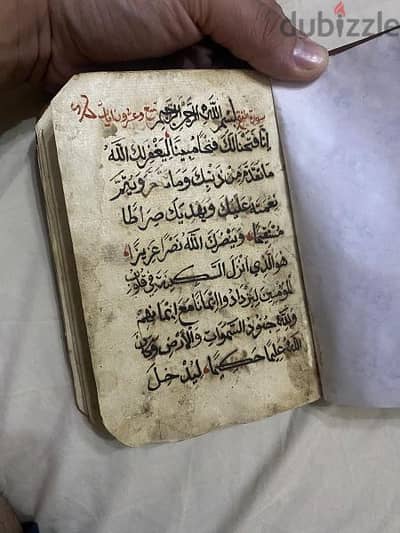 dubizzle
سورة الفتح بسم الله الرحمن الرحيم تسع وعشرون اية
انا فتحنا لك فتحا مبينا ليغفر لك الله
ما تقدم من ذنبك وما تاخر ويتم
نعمته عليك ويهديك صراطا
مستقيما وينصرك الله نصرا عزيزا
هو الذي انزل السكينة في قلوب
المومنين ليزدادوا ايمانا مع ايمانهم
ولله جنود السموات والارض وكان
الله عليما حكيما ليدخل